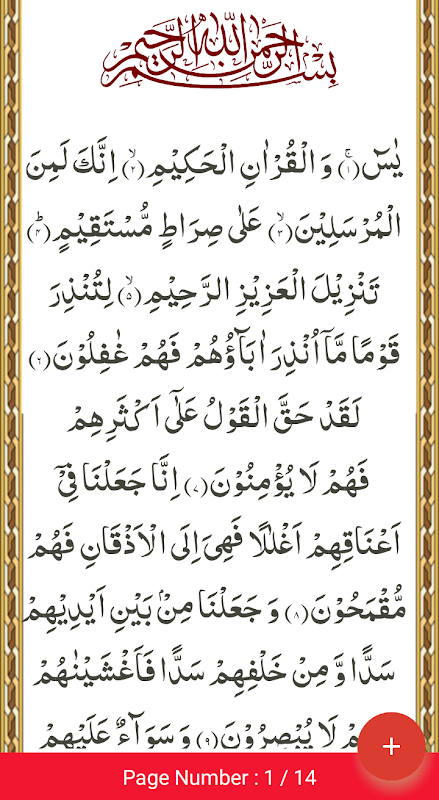 بِسْمِ اللّٰهِ الرَّحْمٰنِ الرَّحِيْمِ
يٰسٓ(۱) وَ الْقُرْاٰنِ الْحَكِيْمِ(۲) اِنَّكَ لَمِنَ
الْمُرْسَلِيْنَ(۳) عَلٰى صِرَاطٍ مُّسْتَقِيْمٍ(۴)
تَنْزِيْلَ الْعَزِيْزِ الرَّحِيْمِ(۵) لِتُنْذِرَ
قَوْمًا مَّاۤ اُنْذِرَ اٰبَآؤُهُمْ فَهُمْ غٰفِلُوْنَ(۶)
لَقَدْ حَقَّ الْقَوْلُ عَلٰۤى اَكْثَرِهِمْ
فَهُمْ لَا يُؤْمِنُوْنَ(۷) اِنَّا جَعَلْنَا فِیْۤ
اَعْنَاقِهِمْ اَغْلٰلًا فَهِیَ اِلَى الْاَذْقَانِ فَهُمْ
مُّقْمَحُوْنَ(۸) وَ جَعَلْنَا مِنْۢ بَيْنِ اَيْدِيْهِمْ
سَدًّا وَّ مِنْ خَلْفِهِمْ سَدًّا فَاَغْشَيْنٰهُمْ
لَا يُبْصِرُوْنَ(۹) وَ سَوَآءٌ عَلَيْهِمْ
+
Page Number : 1 / 14